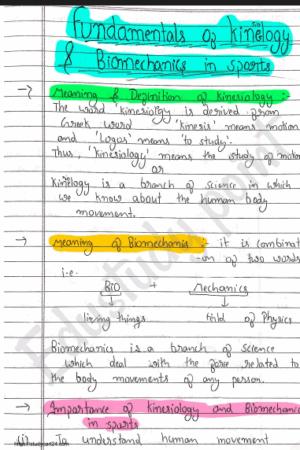 Fundamentals of kinelogy
& Biomechanics in sports
→ Meaning & Definition of kinesiology :-
The word 'kinesiology is derived from
Greek word 'kinesis' means motion
and 'Logos' means to study.
Thus, 'kinesiology' means the study of motion
or
Kinelogy is a branch of science in which
we know about the human body
movement.
→ Meaning of Biomechanis :- it is combinat
-ion of two words
i.e.
Bio + Mechanics
↓ ↓
living things field of Physics
Biomechanics is a branch of science
which deal with the force related to
the body movements of any person.
→ Importance of kinesiology and Biomechanic
in sports
(i) To understand human movement